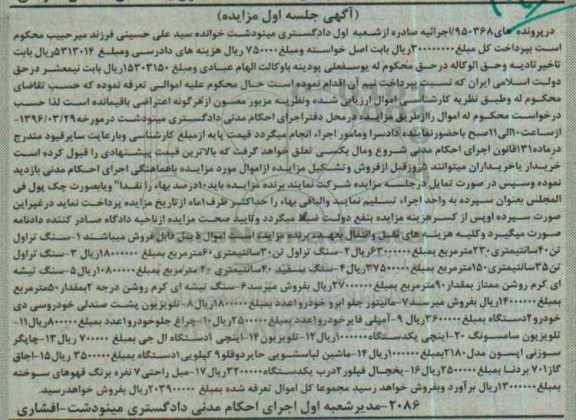 (آگهی جلسه اول مزایده)
درپرونده های ۹۵۰۳۶۸/اجرائیه صادره ازشعبه اول دادگستری مینودشت خوانده سید علی حسینی فرزند میرحبیب محکوم
است بپرداخت کل مبلغ ۳۰۰۰۰۰۰۰ریال بابت اصل خواسته ومبلغ۷۵۰۰۰۰ ریال هزینه های دادرسی ومبلغ ۵۳۱۳۰۱۴ریال بابت
تاخیرتادیه وحق الوکاله درحق محکوم له یوسفعلی پودینه باوکالت الهام عبادی ومبلغ ۱۵۳۰۳۱۵۰ریال بابت نیمعشر درحق
دولت اسلامی ایران که نسبت بپرداخت نیم آن اقدام نموده است حال محکوم علیه اموالی تعرفه نموده که حسب تقاضای
محکوم له وطبق نظریه کارشناسی اموال ارزیابی شده ونظریه مزبور مصون ازهرگونه اعتراضی باقیمانده است لذا حسب
درخواست محکوم له اموال راازطریق مزایده درمحل دفتراجرای احکام مدنی دادگستری مینودشت درمورخه ۱۳۹۶/۰۳/۲۹-
ازساعت۱۰الی۱۱صبح باحضورنماینده دادسرا ومامور اجراء انجام میگردد قیمت پایه ازمبلغ کارشناسی وبارعایت سایرقیود مندرج
درماده۱۳۱قانون اجرای احکام مدنی شروع ومال بکسی تعلق خواهد گرفت که بالاترین قیمت پیشنهادی را قبول کرده است
خریدار یاخریداران میتوانند ۵روزقبل ازفروش وتشکیل مزایده ازاموال مورد مزایده باهماهنگی اجرای احکام مدنی بازدید
نموده وسپس در صورت تمایل درجلسه مزایده شرکت نمایند برنده مزایده باید۱۰درصد بهاء را نقدا" ویابصورت چک پول فی
المجلس بعنوان سپرده به واحد اجراء تسلیم نماید والباقی بهاء را حداکثر ظرف۱ماه ازتاریخ مزایده پرداخت نماید درغیراین
صورت سپرده اوپس از کسرهزینه مزایده بنفع دولت ضبط میگردد وتایید صحت مزایده ازناحیه دادگاه صادر کننده دادنامه
صورت میگیرد وکلیه هزینه های نقل وانتقال بعهده برنده مزایده است اموال ذیل قابل فروش میباشند ۱-سنگ تراول
تن۴۰سانتیمتری۲۳۰مترمربع بمبلغ۶۳۰۰۰۰۰۰ریال۲-سنگ تراول تن۳۰سانتیمتری۶۰مترمربع بمبلغ۱۸۰۰۰۰۰۰ریال ۳-سنگ تراول
تن۳۵سانتیمتری۱۵۰مترمربع بمبلغ۳۷۵۰۰۰۰۰ریال۴-سنگ سفید ۴۰سانتیمتری ۴۰مترمربع بمبلغ۱۰۸۰۰۰۰۰ریال۵-سنگ تیشه
ای کرم روشن ممتاز بمقدار۹۰مترمربع بمبلغ۲۷۰۰۰۰۰۰ریال بفروش میرسد۶-سنگ تیشه ای کرم روشن درجه ۲بمقدار۵۰مترمربع
بمبلغ۱۴۰۰۰۰۰۰ریال بفروش میرسد۷-مانیتور جلو ابرو خودرو۱عدد بمبلغ۱۸۰۰۰۰۰ریال۸-تلویزیون پشت صندلی خودروسی دی
خودرو۲دستگاه بمبلغ۳۶۰۰۰۰۰ریال ۹-آمپلی فایرخودرو۱عدد بمبلغ۲۵۰۰۰۰۰ریال۱۰-چراغ جلوخودرو۱عدد بمبلغ۸۰۰۰۰۰ریال۱۱-
تلویزیون سامسونگ ۲۰اینچی یکدستگاه۱۰۰۰۰۰۰ریال۱۲-تلویزیون۱۴اینچی ۱دستگاه ال جی بمبلغ ۷۰۰۰۰۰ ریال۱۳-چاپگر
سوزنی اپسون مدل۲۱۸۰بمبلغ۱۰۰۰۰۰۰ریال۱۴-ماشین لباسشویی حایردوقلو۹ کیلویی۱دستگاه بمبلغ۳۵۰۰۰۰۰ ریال۱۵-اجاق
گاز۷۰۱ بردنا بمبلغ۲۵۰۰۰۰۰ریال۱۶-یخچال فیلور۲درب یکدستگاه۳۲۰۰۰۰۰ریال۱۷-مبل راحتی۷ نفره برنگ قهوهای سوخته
بمبلغ۱۳۰۰۰۰۰۰ریال برآورد وبفروش خواهد رسید مجموعا کل اموال تعرفه شده بمبلغ ۲۰۳۹۰۰۰۰۰ ریال بفروش خواهدرسید.
۲۰۸۶-مدیرشعبه اول اجرای احکام مدنی دادگستری مینودشت-افشاری